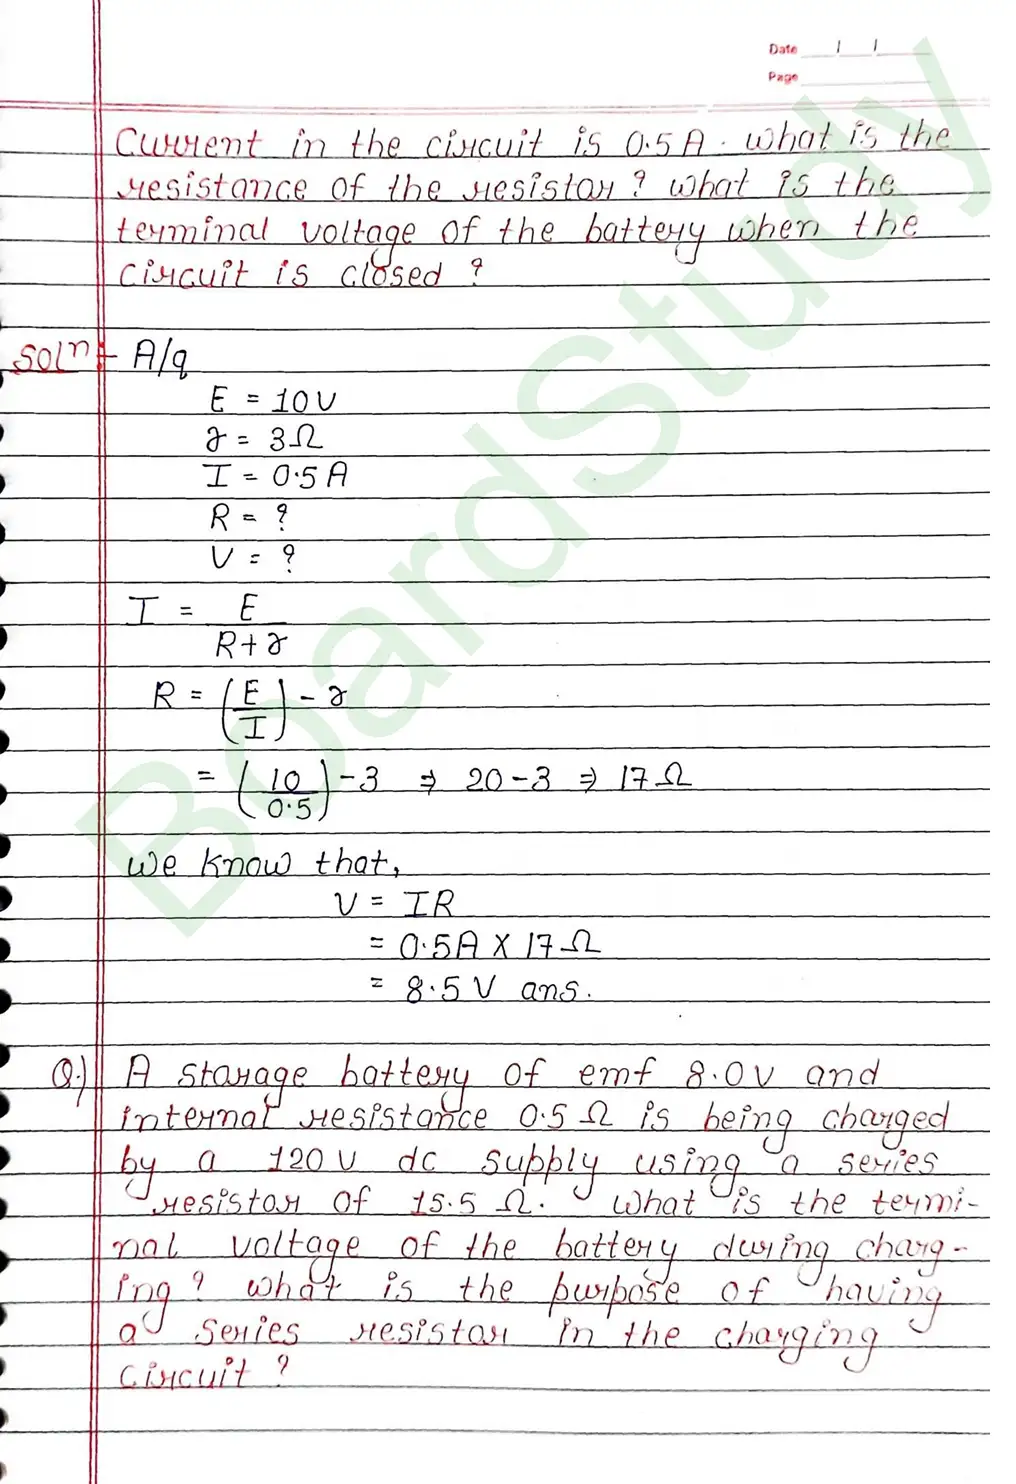 Date / /
Page
Current in the circuit is 0.5 A. what is the
resistance of the resistor? what is the
terminal voltage of the battery when the
circuit is closed?
Solⁿ:- A/q
E = 10V
r = 3Ω
I = 0.5 A
R = ?
V = ?
I = E / R+r
R = (E/I) - r
= (10/0.5) - 3 ⇒ 20-3 ⇒ 17 Ω
We know that,
V = IR
= 0.5A X 17Ω
= 8.5 V ans.
Q.) A storage battery of emf 8.0V and
internal resistance 0.5 Ω is being charged
by a 120 V dc supply using a series
resistor of 15.5 Ω. What is the termi-
nal voltage of the battery during charg-
ing? what is the purpose of having
a series resistor in the charging
circuit?
BoardStudy